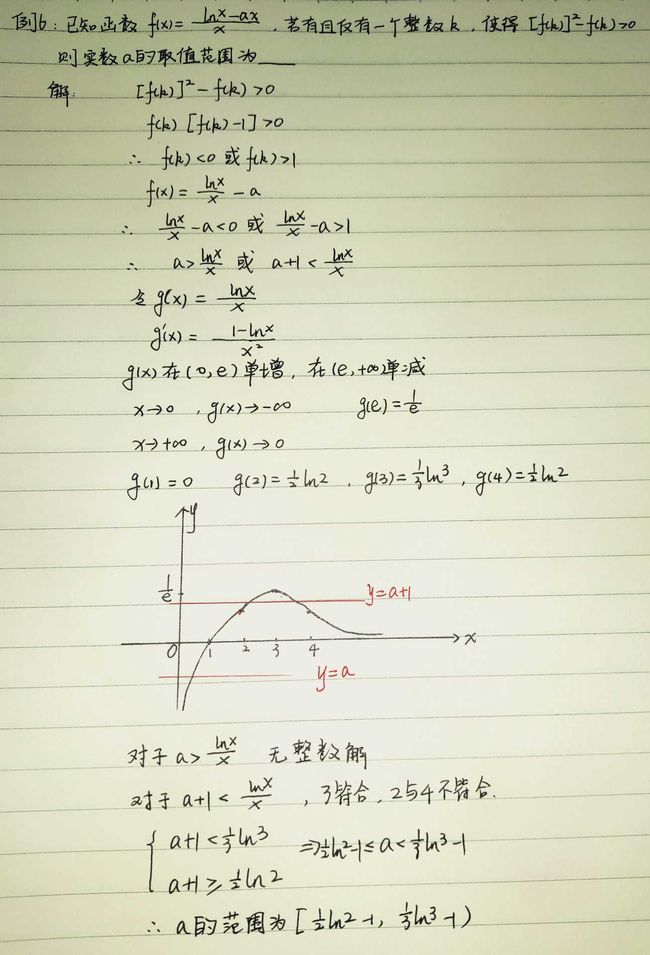 例6：已知函数 f(x)= (lnx-ax)/x，若有且仅有一个整数k，使得 [f(k)]²-f(k)>0
则实数a的取值范围为____
解： [f(k)]²-f(k)>0
f(k) [f(k)-1]>0
∴ f(k)<0 或 f(k)>1
f(x)= lnx/x -a
∴ lnx/x -a<0 或 lnx/x -a>1
∴ a> lnx/x 或 a+1< lnx/x
令 g(x)= lnx/x
g'(x)= (1-lnx)/x²
g(x)在(0,e)单增，在(e,+∞)单减
x→0 ，g(x)→-∞ g(e)=1/e
x→+∞ ，g(x)→0
g(1)=0 g(2)=½ln2 ，g(3)=⅓ln3 ，g(4)=½ln2
y
1/e y=a+1
0 1 2 3 4 x
y=a
对于 a> lnx/x 无整数解
对于 a+1< lnx/x ，3符合，2与4不符合.
{ a+1<⅓ln3 ⇒½ln2-1≤a<⅓ln3-1
a+1≥½ln2
∴ a的范围为 [½ln2-1, ⅓ln3-1)